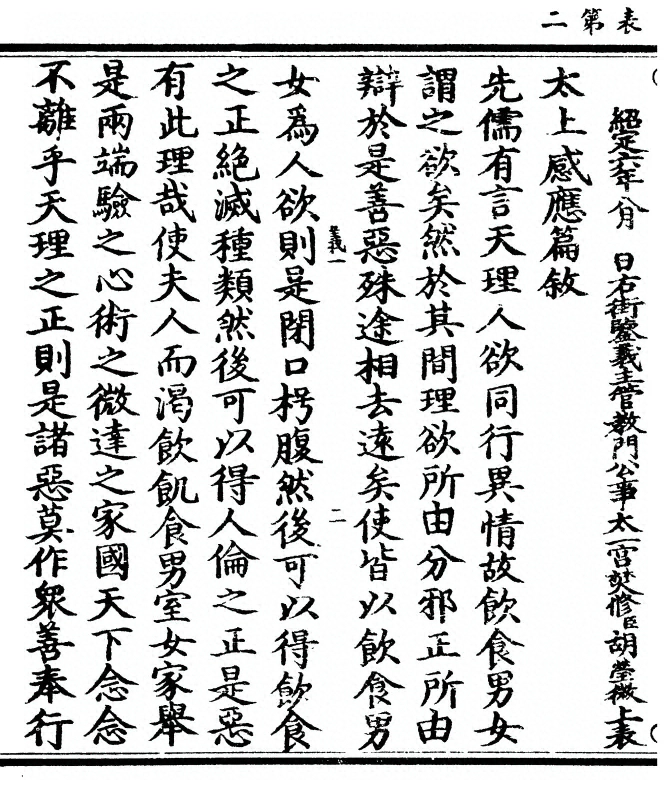 表第二
紹定六年八月　日右街鑒義主管教門公事太一宮焚修臣胡瑩微上表
太上感應篇敘
先儒有言天理人欲同行異情故飲食男女
謂之欲矣然於其間理欲所由分邪正所由
辯於是善惡殊途相去遠矣使皆以飲食男
義一
二
女爲人欲則是閉口枵腹然後可以得飲食
之正絕滅種類然後可以得人倫之正是惡
有此理哉使夫人而渴飲飢食男室女家舉
是兩端驗之心術之微達之家國天下念念
不離乎天理之正則是諸惡莫作衆善奉行